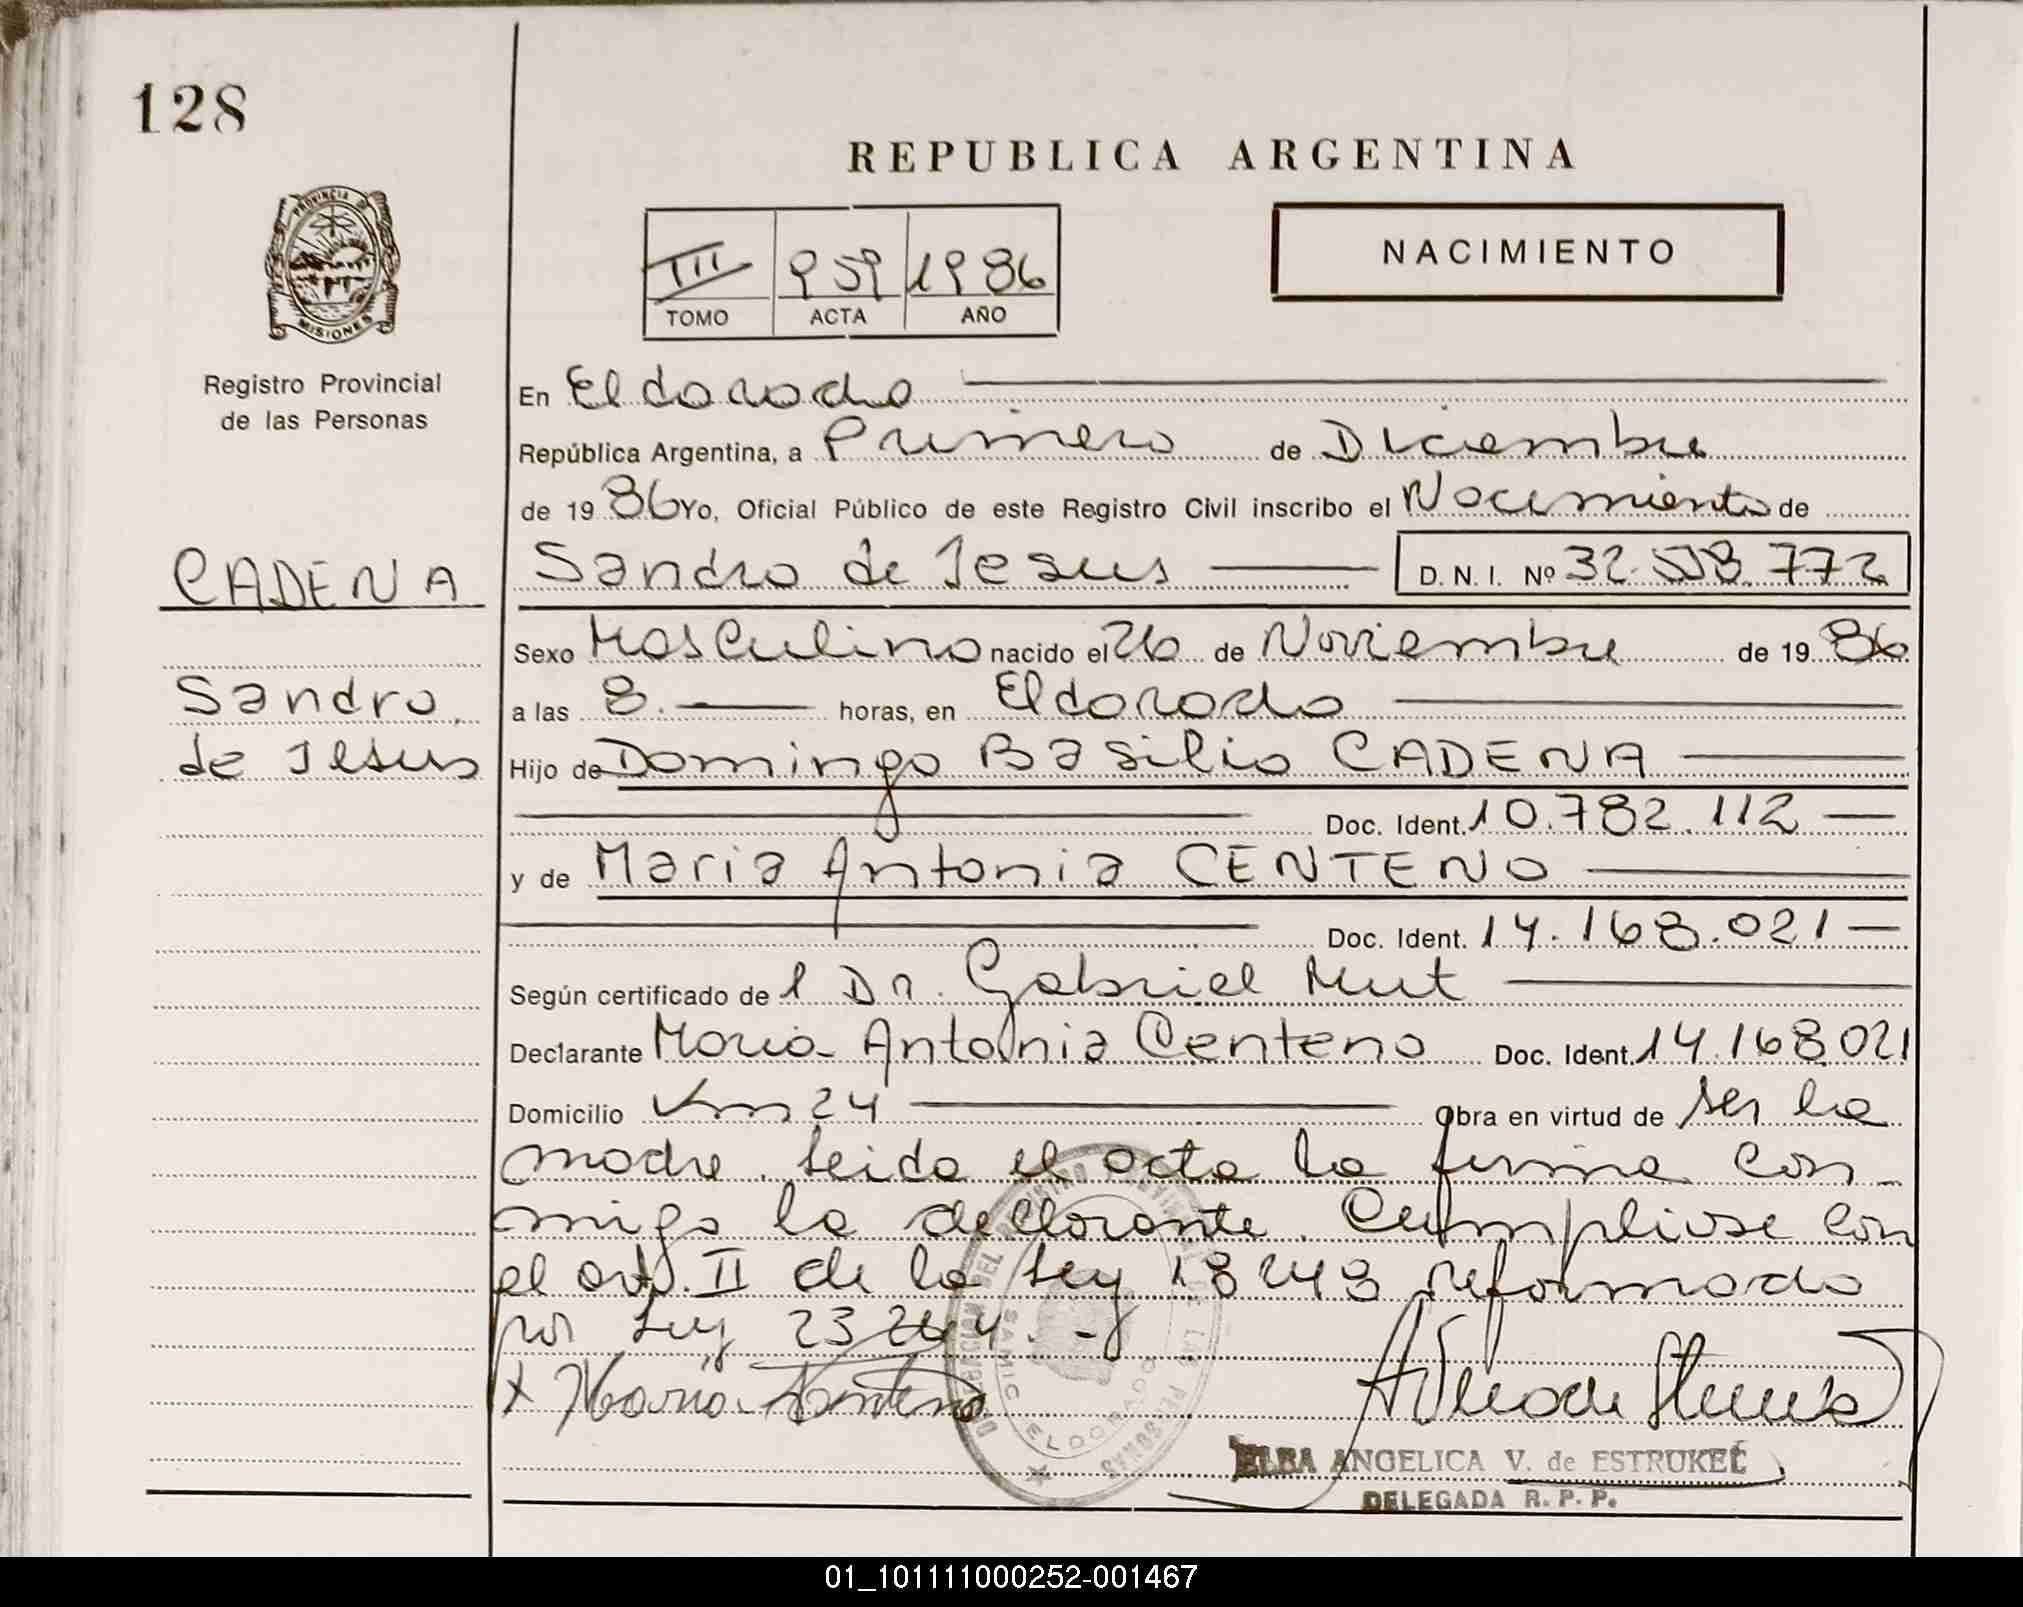 128
REPUBLICA ARGENTINA
PROVINCIA DE
MISIONES
III 959 1986
TOMO ACTA AÑO
NACIMIENTO
Registro Provincial
de las Personas
CADENA
Sandro
de Jesus
En Eldorado
República Argentina, a Primero de Diciembre
de 19 86 Yo, Oficial Público de este Registro Civil inscribo el Nacimiento de
Sandro de Jesus D. N. I. Nº 32.538.772
Sexo Masculino nacido el 26 de Noviembre de 19 86
a las 8. horas, en Eldorado
Hijo de Domingo Basilio CADENA
Doc. Ident. 10.782.112
y de Maria Antonia CENTENO
Doc. Ident. 14.168.021
Según certificado del Dr. Gabriel Mut
Declarante Maria Antonia Centeno Doc. Ident. 14.168.021
Domicilio Km 24 Obra en virtud de ser la
madre. Leida el acta la firma con-
migo la declarante. Cumpliose con
el art. II de la Ley 18248 reformado
por Ley 23264.-
x Maria Centeno
ELBA ANGELICA V. de ESTRUKEL
DELEGADA R. P. P.
DELEGACION DEL REGISTRO PROVINCIAL DE LAS PERSONAS
SAMIC ELDORADO
01_101111000252-001467